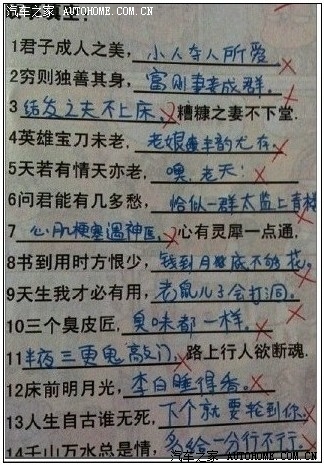 汽车之家 AUTOHOME.COM.CN
1君子成人之美，小人夺人所爱
2穷则独善其身，富则妻妾成群.
3 结发之夫不上床，糟糠之妻不下堂.
4英雄宝刀未老，老娘丰韵尤存.
5天若有情天亦老，噢，老天!
6问君能有几多愁，恰似一群太监上青楼
7 心肌梗塞遇神医，心有灵犀一点通，
8书到用时方恨少，钱到月底不够花，
9天生我才必有用，老鼠儿子会打洞.
10三个臭皮匠，臭味都一样.
11半夜三更鬼敲门，路上行人欲断魂.
12床前明月光，李白睡得香.
13人生自古谁无死，下个就要轮到你.
14千山万水总是情，多给一分行不行.
汽车之家 AUTOHOME.COM.CN